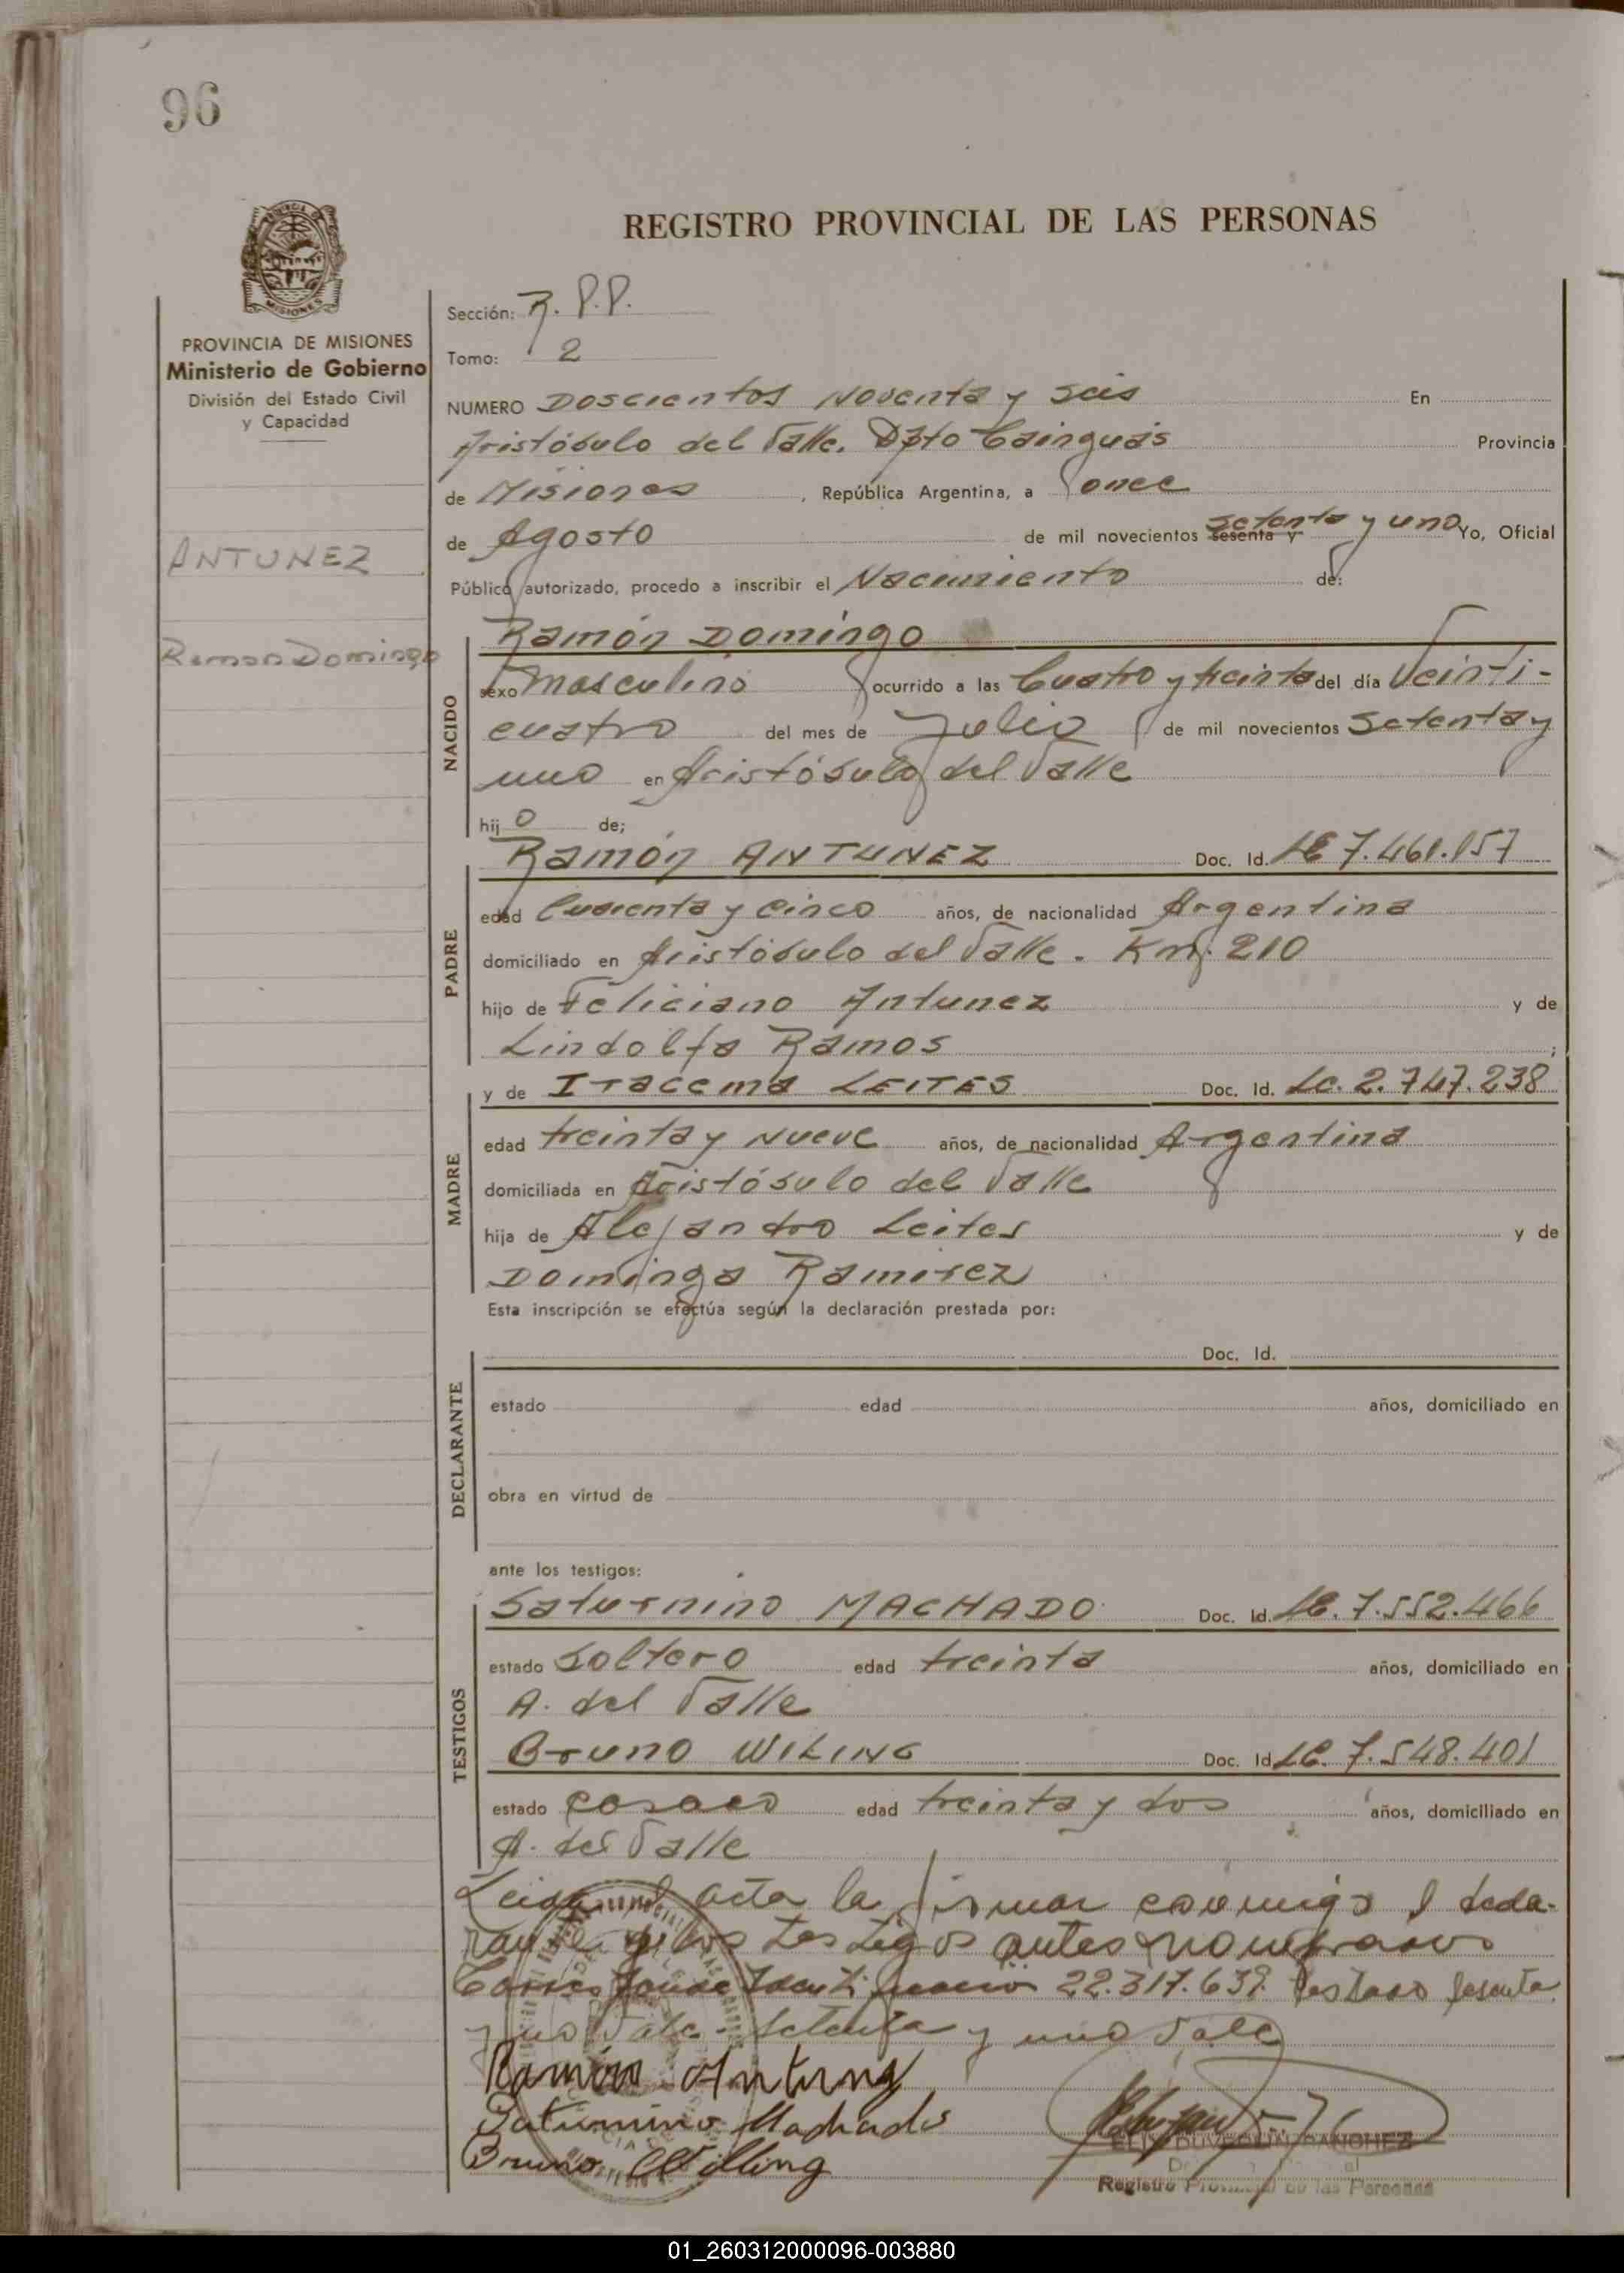 96
REGISTRO PROVINCIAL DE LAS PERSONAS
PROVINCIA DE MISIONES
Ministerio de Gobierno
División del Estado Civil
y Capacidad
ANTUNEZ
Ramon Domingo
Sección: R. P.P.
Tomo: 2
NUMERO Doscientos Noventa y seis En
Aristóbulo del Valle. Dpto Cainguás Provincia
de Misiones, República Argentina, a once
de Agosto de mil novecientos sesenta y setenta y uno Yo, Oficial
Público autorizado, procedo a inscribir el Nacimiento de:
NACIDO
Ramón Domingo
sexo masculino ocurrido a las Cuatro y treinta del día Veinti-
cuatro del mes de Julio de mil novecientos setenta y
uno en Aristóbulo del Valle
hij o de;
PADRE
Ramón ANTUNEZ Doc. Id. LE 7.461.157
edad Cuarenta y cinco años, de nacionalidad Argentina
domiciliado en Aristóbulo del Valle. Km. 210
hijo de Feliciano Antunez y de
Lindolfa Ramos ;
MADRE
y de Itacema LEITES Doc. Id. LC. 2.747.238
edad treinta y nueve años, de nacionalidad Argentina
domiciliada en Aristóbulo del Valle
hija de Alejandro Leites y de
Dominga Ramirez
Esta inscripción se efectúa según la declaración prestada por:
DECLARANTE
Doc. Id.
estado edad años, domiciliado en
obra en virtud de
ante los testigos:
TESTIGOS
Saturnino MACHADO Doc. Id. LE. 7.552.466
estado soltero edad treinta años, domiciliado en
A. del Valle
Bruno WILING Doc. Id LE. 7.548.401
estado casado edad treinta y dos años, domiciliado en
A. del Valle
Leida el acta la firman conmigo el decla-
rante y los testigos antes nombrados
22.317.639. Testado sesenta
y no Vale - setenta y uno Vale
Ramón Antunez
Saturnino Machado
Bruno Willing
SANCHEZ
Registro Provincial de las Personas
01_260312000096-003880